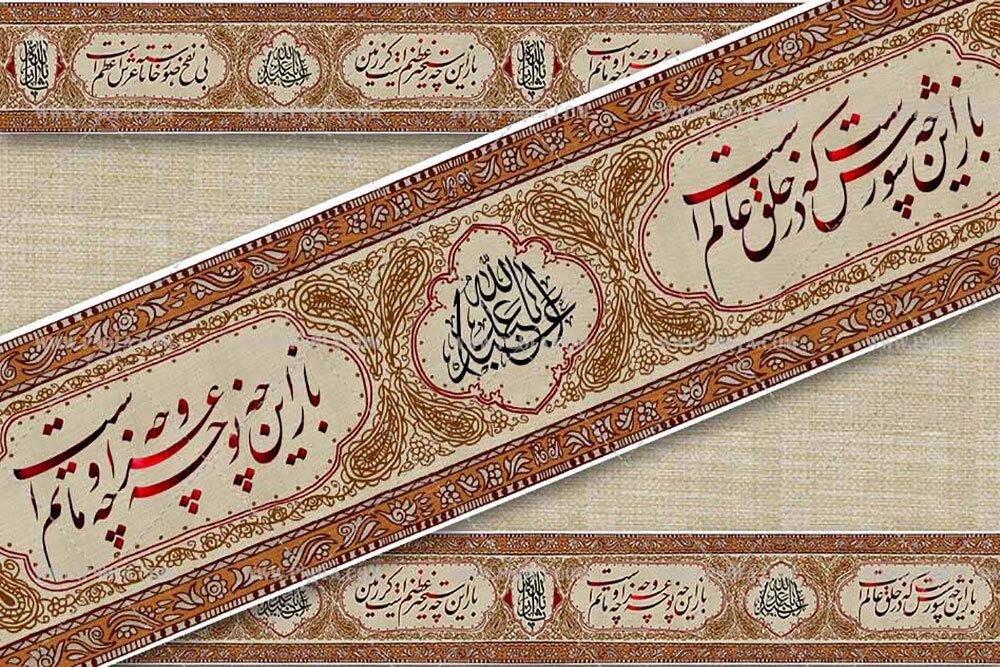 باز این چه نوحه و چه عزا و چه ماتم است
باز این چه رستخیز عظیم است کز زمین
یا اباعبدالله
بی نفخ صور خاسته تا عرش اعظم است
باز این چه شورش است که در خلق عالم است
یا اباعبدالله
باز این چه نوحه و چه عزا و چه ماتم است
باز این چه شورش است که در خلق عالم است
یا اباعبدالله
باز این چه نوحه و چه عزا و چه ماتم است
باز این چه رستخیز عظیم است کز زمین
یا اباعبدالله